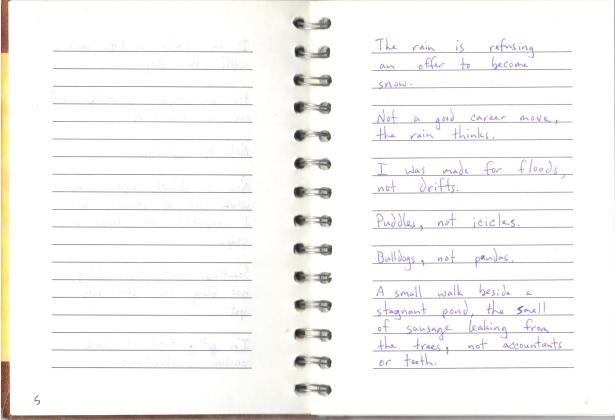 5
The rain is refusing
an offer to become
snow.
Not a good career move,
the rain thinks.
I was made for floods,
not drifts.
Puddles, not icicles.
Bulldogs, not pandas.
A small walk beside a
stagnant pond, the smell
of sausage leaking from
the trees, not accountants
or teeth.